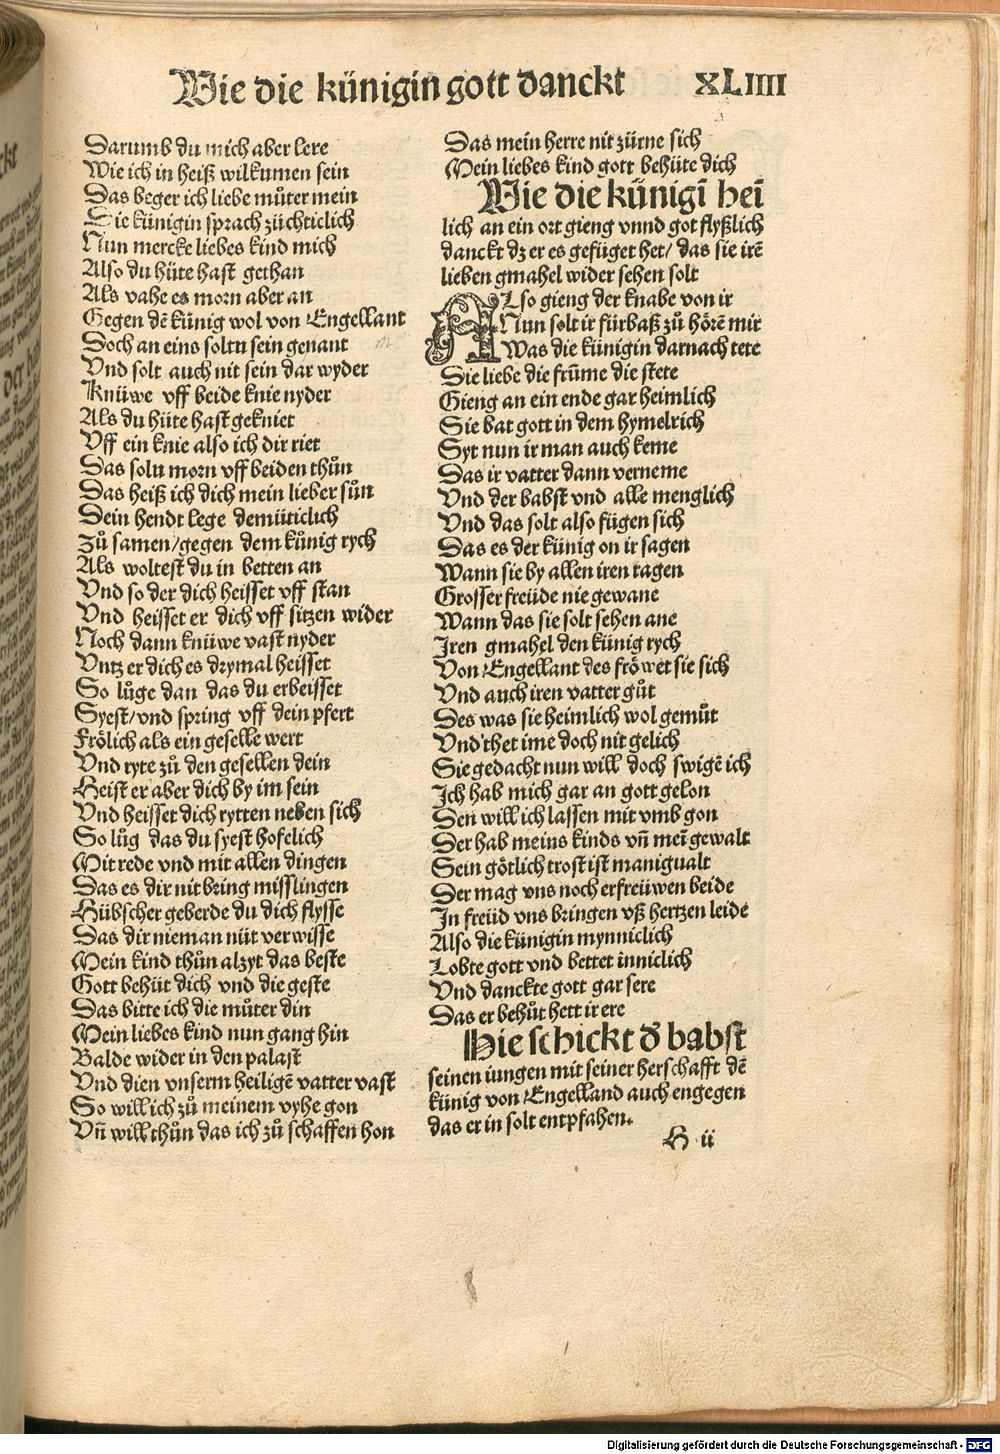 Wie die künigin gott danckt XLIIII
Darumb du mich aber lere
Wie ich in heiß wilkumen sein
Das beger ich liebe můter mein
Die künigin sprach züchticlich
Nun mercke liebes kind mich
Also du hüte hast gethan
Als vahe es morn aber an
Gegen dē künig wol von Engellant
Doch an eins soltu sein genant
Vnd solt auch nit sein dar wyder
Knüwe vff beide knie nyder
Als du hüte hast gekniet
Vff ein knie also ich dir riet
Das soltu morn vff beiden thůn
Das heiß ich dich mein lieber sůn
Dein hendt lege demüticlich
Zů samen/gegen dem künig rych
Als woltest du in betten an
Vnd so der dich heisset vff stan
Vnd heisset er dich vff sitzen wider
Noch dann knüwe vast nyder
Vntz er dich es drymal heisset
So lůge dan das du erbeisset
Syest/vnd spring vff dein pfert
Frölich als ein geselle wert
Vnd ryte zů den gesellen dein
Heist er aber dich by im sein
Vnd heisset dich rytten neben sich
So lůg das du syest hofelich
Mit rede vnd mit allen dingen
Das es dir nit bring misslingen
Hübscher geberde du dich flysse
Das dir nieman nüt verwisse
Mein kind thůn alzyt das beste
Gott behüt dich vnd die geste
Das bitte ich die můter din
Mein liebes kind nun gang hin
Balde wider in den palast
Vnd dien vnserm heiligē vatter vast
So will ich zů meinem vyhe gon
Vn̄ will thůn das ich zů schaffen hon
Das mein herre nit zürne sich
Mein liebes kind gott behüte dich
Wie die künigī hei
lich an ein ort gieng vnnd got flyßlich
danckt dz er es gefüget het/ das sie irē
lieben gmahel wider sehen solt
Also gieng der knabe von ir
Nun solt ir fürbaß zů hörē mir
Was die künigin darnach tete
Die liebe die frūme die stete
Gieng an ein ende gar heimlich
Sie bat gott in dem hymelrich
Syt nun ir man auch keme
Das ir vatter dann verneme
Vnd der babst vnd alle menglich
Vnd das solt also fügen sich
Das es der künig on ir sagen
Wann sie by allen iren tagen
Grosser freüde nie gewane
Wann das sie solt sehen ane
Iren gmahel den künig rych
Von Engellant des fröwet sie sich
Vnd auch iren vatter gůt
Des was sie heimlich wol gemůt
Vnd thet ime doch nit gelich
Sie gedacht nun will doch swigē ich
Ich hab mich gar an gott gelon
Den will ich lassen mit vmb gon
Der hab meins kinds vn̄ mei gewalt
Sein götlich trost ist manigualt
Der mag vns noch erfreüwen beide
In freüd vns bringen vß hertzen leide
Also die künigin mynniclich
Lobte gott vnd bettet inniclich
Vnd danckte gott gar sere
Das er behůt hett ir ere
Hie schickt d̄ babst
seinen iungen mit seiner herschafft dē
künig von Engelland auch engegen
das er in solt entpfahen.
H ii
Digitalisierung gefördert durch die Deutsche Forschungsgemeinschaft - DFG